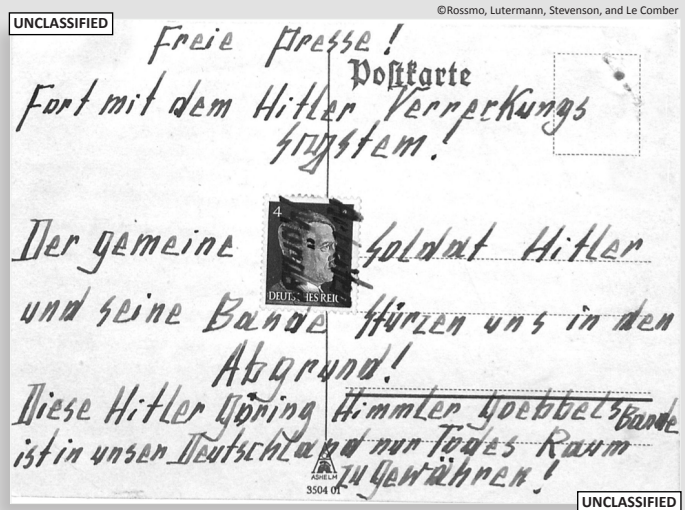 ©Rossmo, Lutermann, Stevenson, and Le Comber
UNCLASSIFIED
Freie Presse!
Postkarte
Fort mit dem Hitler Verrerkungs
System!
4
DEUTSCHES REICH
Der gemeine Soldat Hitler
und seine Bande stürzen uns in den
Abgrund!
Diese Hitler Göring Himmler Goebbels Bande
ist in unser Deutschland nur Todes Raum
zu gewähren!
ASHELM
3504 01
UNCLASSIFIED